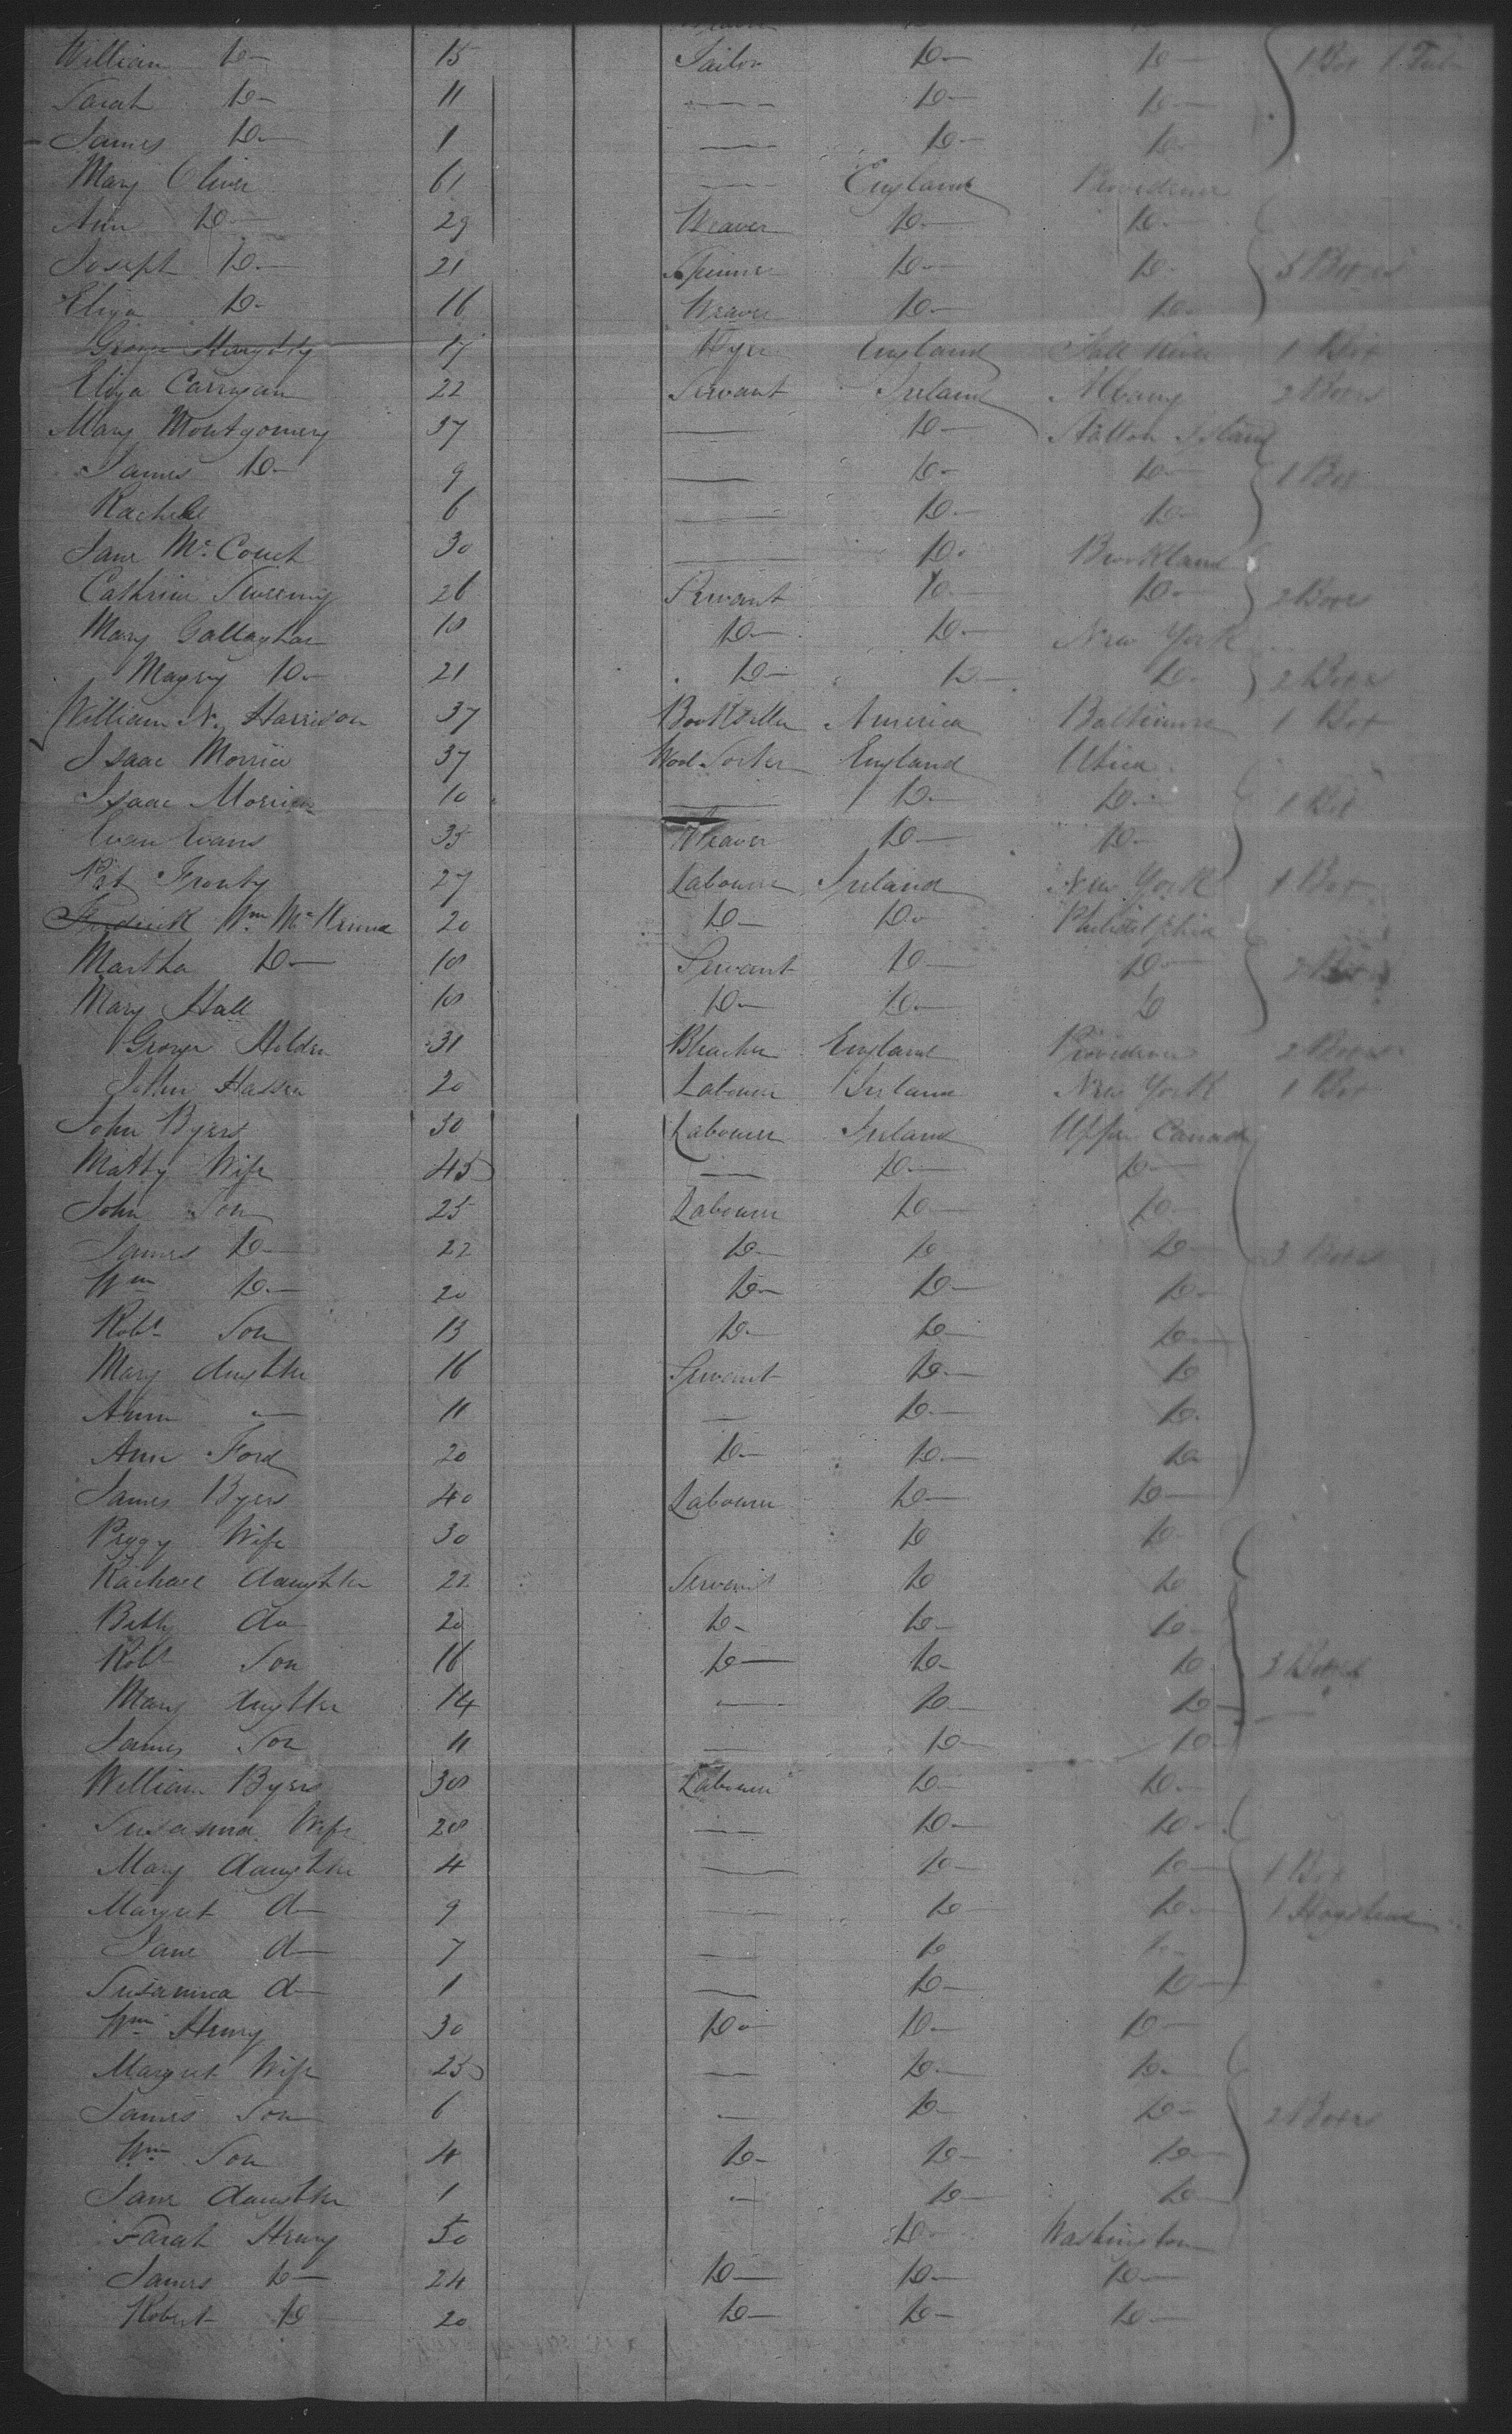 William Do 15 Tailor Do Do 1 Box 1
Sarah Do 11 Do Do
James Do 1 Do Do
Mary Oliver 61 England Providence
Ann Do 29 Weaver Do Do
Joseph Do 21 Spinner Do Do 3 Boxes
Eliza Do 16 Weaver Do Do
George 17 Dyer England Fall River 1 Box
Eliza Carrigan 22 Servant Ireland Albany 2 Boxes
Mary Montgomery 37 Do Statton Island
James Do 9 Do Do 1 Box
Rachel 6 Do Do
Jane Mc Couch 30 Do Brookland
Cathrine Sweeney 26 Servant Do Do 2 Boxes
Mary Gallagher 18 Do Do New York
Magery Do 21 Do Do Do 2 Boxes
William N. Harrison 37 Bookseller America Baltimore 1 Box
Isaac Morrice 37 Wool Sorter England Utica
Isaac Morrice 10 Do Do 1 Box
Evan Evans 35 Weaver Do Do
Pat 27 Labourer Ireland New York 1 Box
Frederick Wm McKenna 20 Do Do Philadelphia
Martha Do 18 Servant Do Do 2 Boxes
Mary Hall 18 Do Do Do
George Holden 31 Bleacher England Providence 2 Boxes
John Hassen 20 Labourer Ireland New York 1 Box
John Byers 50 Labourer Ireland Upper Canada
Matty Wife 45 Do Do
John Son 25 Labourer Do Do
James Do 22 Do Do Do 3 Boxes
Wm Do 20 Do Do Do
Robt Son 13 Do Do Do
Mary daughter 16 Servant Do Do
Ann 11 Do Do
Ann Ford 20 Do Do Do
James Byers 40 Labourer Do Do
Peggy Wife 30 Do Do
Rachael daughter 22 Servant Do Do
Betty do 20 Do Do Do
Robt Son 16 Do Do Do 3 Boxes
Mary daughter 14 Do Do
James Son 11 Do Do
William Byers 38 Labourer Do Do
Susanna Wife 28 Do Do
Mary daughter 4 Do Do 1 Box
Margret d 9 Do Do 1 Hogshead
Jane d 7 Do Do
Susanna d 1 Do Do
Wm Henry 30 Do Do Do
Margret Wife 25 Do Do
James Son 6 Do Do 2 Boxes
Wm Son 4 Do Do Do
Jane daughter 1 Do Do
Sarah Henry 50 Do Washington
James Do 24 Do Do Do
Robert Do 20 Do Do Do